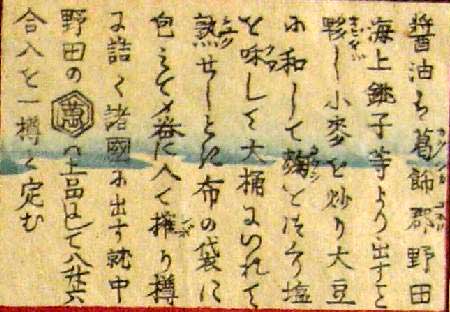 醤油は葛飾郡野田
海上銚子等より出すこと
夥し小麦を炒り大豆
に和して麹をつくり塩
を味して大桶にいれて
熟せしとき布の袋に
包みて〆器に入て搾り樽
に詰て諸國に出す就中
野田の萬ハ上品にして八升六
合入を一樽と定む